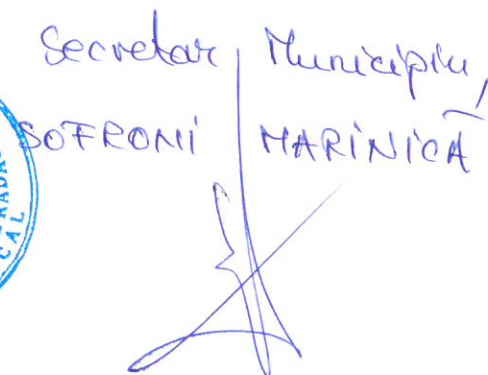 Secretar Municipiu,
SOFRONI MARINICĂ
RADA
CAL